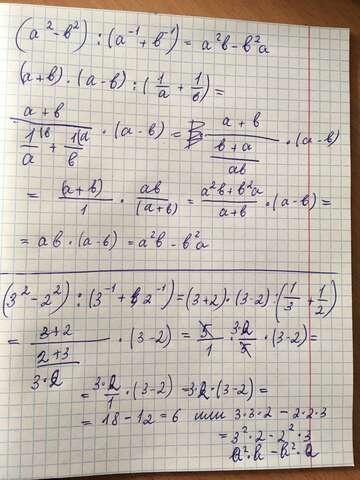 (a² - b²) : (a⁻¹ + b⁻¹) = a²b - b²a
(a+b) · (a-b) : (1/a + 1/b) =
(a+b)/(1\b/a + 1\a/b) · (a-b) = (a+b)/((b+a)/ab) · (a-b)
= (a+b)/1 · ab/(a+b) = (a²b+b²a)/(a+b) · (a-b) =
= ab · (a-b) = a²b - b²a
(3² - 2²) : (3⁻¹ + 2⁻¹) = (3+2) · (3-2) : (1/3 + 1/2)
= (3+2)/((2+3)/(3·2)) · (3-2) = 5/1 · 3·2/5 · (3-2) =
= 3·2/1 · (3-2) = 3·2 · (3-2) =
= 18 - 12 = 6 или 3·3·2 - 2·2·3
= 3²·2 - 2²·3
a²·b - b²·a